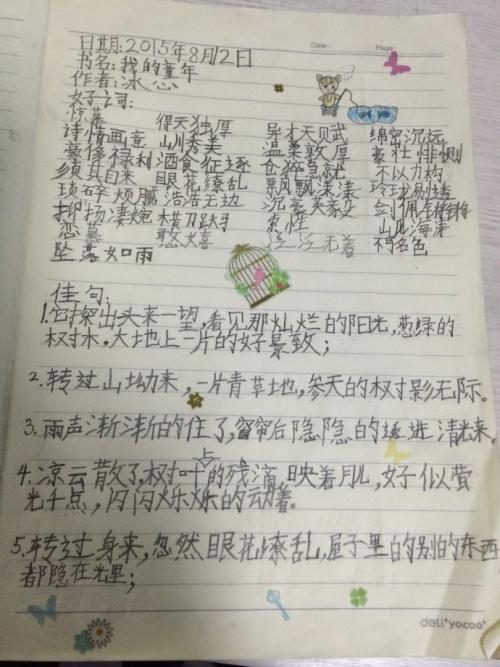 Date:
Page:
日期:2015年8月12日
书名:我的童年
作者:冰心
好词:
惊慕 得天独厚 异才天赋 绵密沉远
诗情画意 山川秀美 温柔敦厚 豪壮悱恻
豪侈禄利 酒食征逐 仓猝当就 不以力构
须其自来 眼花缭乱 飘飘漾漾 玲珑剔透
琐碎烦腻 浩浩无边 沉 剑佩锵锵
抑扬凄婉 横刀跃 索性 山风海涛
恋慕 憨嬉 泛泛无着 不可名色
坠落如雨
佳句:
1.它探出头来一望,看见那灿烂的阳光,葱绿的
树木,大地上一片的好景致;
2.转过山坳来,一片青草地,参天的树影无际。
3.雨声渐渐的住了,窗帘后隐隐的透进清光来。
4.凉云散了,树叶上的残滴,映着月儿,好似萤
光千点,闪闪烁烁的动着。
5.转过身来,忽然眼花缭乱,屋子里的别的东西
都隐在光里;
deli yocoo